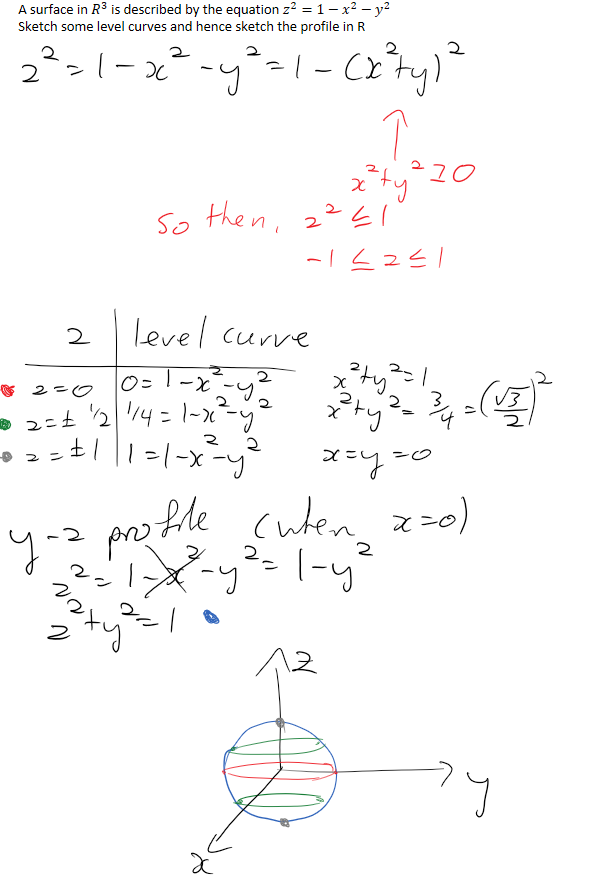 A surface in R³ is described by the equation z² = 1 − x² − y²
Sketch some level curves and hence sketch the profile in R
z² = 1 − x² − y² = 1 − (x² + y)²
x² + y² ≥ 0
So then, z² ≤ 1
−1 ≤ z ≤ 1
z level curve
z = 0 0 = 1 − x² − y² x² + y² = 1
z = ± 1/2 1/4 = 1 − x² − y² x² + y² = 3/4 = (√3/2)²
z = ± 1 1 = 1 − x² − y² x = y = 0
y-z profile (when x = 0)
z² = 1 − x² − y² = 1 − y²
z² + y² = 1
z
y
x